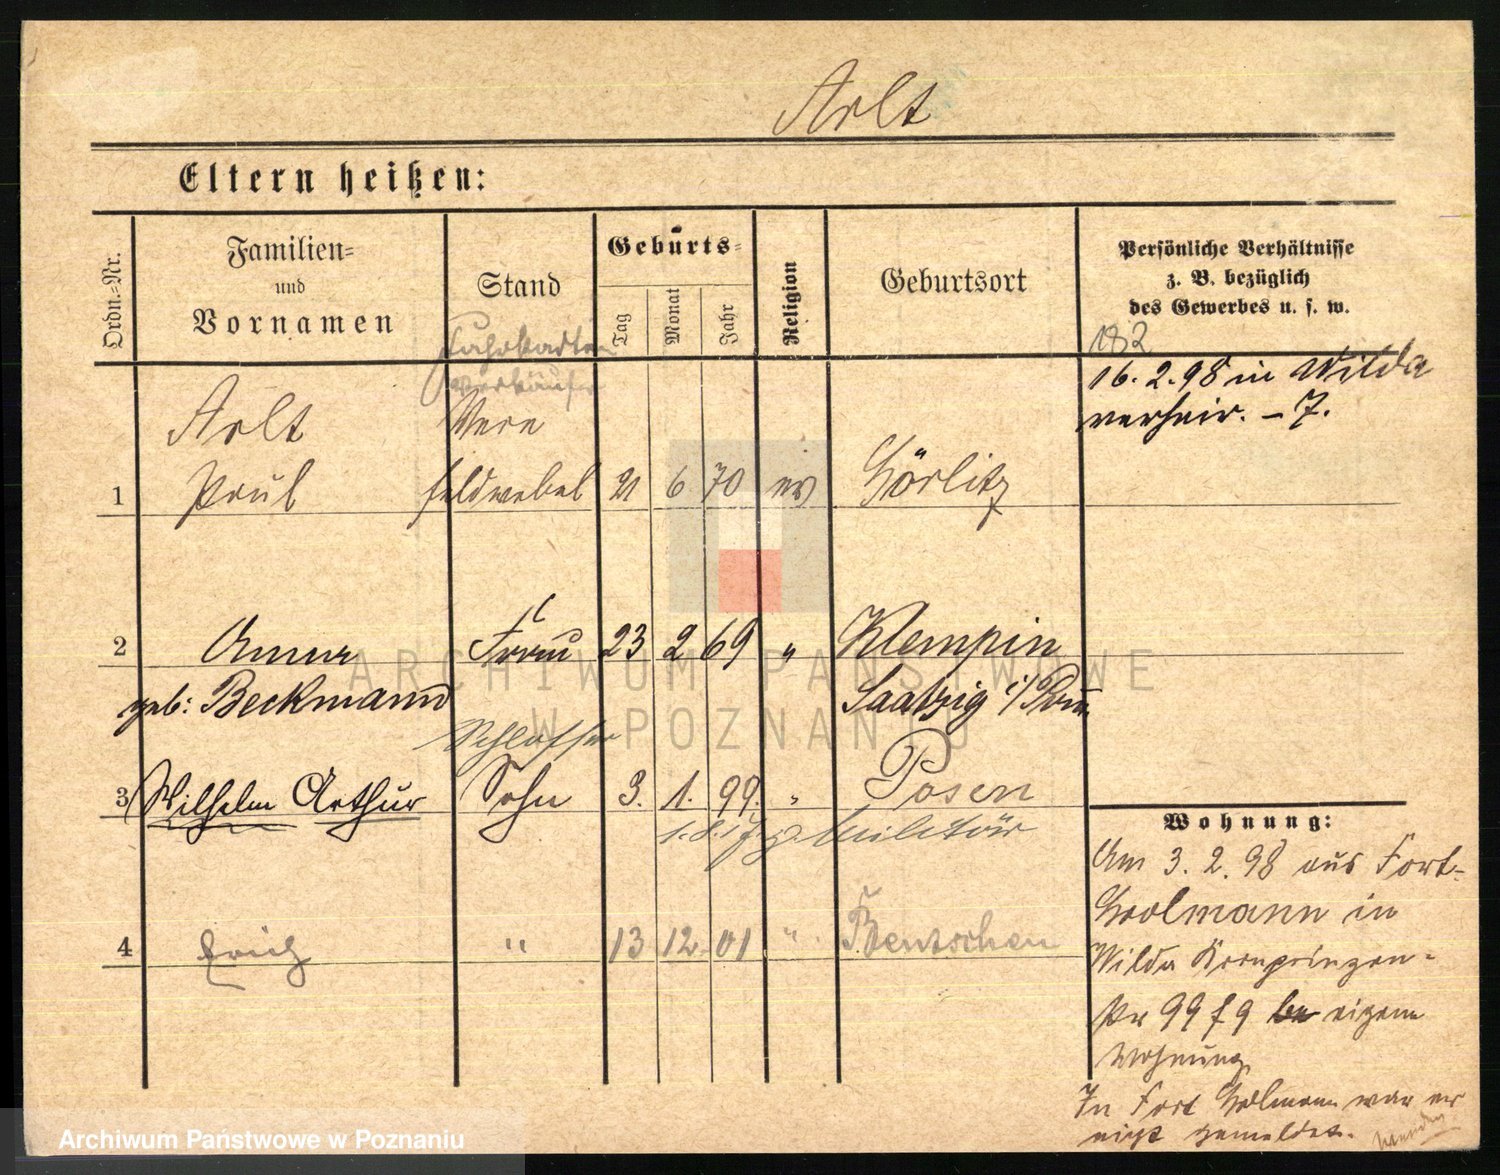 Arlt
Eltern heißen:
Ordn.-Nr.
Familien-
und
Vornamen
Stand
Geburts-
Tag
Monat
Jahr
Religion
Geburtsort
Persönliche Verhältnisse
z. B. bezüglich
des Gewerbes u. s. w.
182
Fahrkarten
verkäufer
16.2.98 in Wilda
verheir. – 7.
Arlt
1 Paul feldwebel 21 6 70 ev Görlitz
2 Anna Frau 23 2 69 " Klempin
geb: Beckmann Saatzig i/Pom
Schlosser
3 Wilhelm Arthur Sohn 3. 1. 99. " Posen
Militär
4 Erich " 13 12 01 " Bentschen
Wohnung:
Am 3.2.98 aus Fort-
Grolmann in
Wilda Kronprinzen-
str 99 f 9 be eigene
Wohnung
In Fort Grolmann war er
nicht gemeldet.
ARCHIWUM PAŃSTWOWE
W POZNANIU
Archiwum Państwowe w Poznaniu